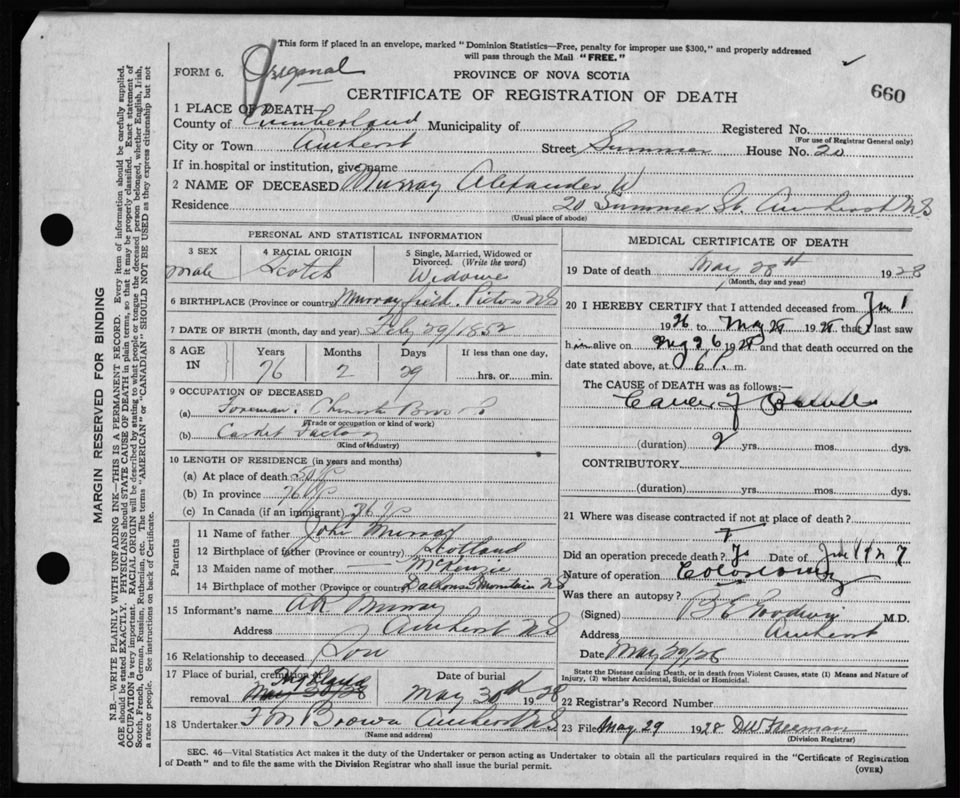 This form if placed in an envelope, marked "Dominion Statistics—Free, penalty for improper use $300," and properly addressed
will pass through the Mail "FREE."
FORM 6. Original
PROVINCE OF NOVA SCOTIA
CERTIFICATE OF REGISTRATION OF DEATH
660
1 PLACE OF DEATH—
County of Cumberland Municipality of Registered No.
(For use of Registrar General only)
City or Town Amherst Street Summer House No. 20
If in hospital or institution, give name
2 NAME OF DECEASED Murray Alexander W
Residence 20 Summer St. Amherst NS
(Usual place of abode)
PERSONAL AND STATISTICAL INFORMATION
3 SEX 4 RACIAL ORIGIN 5 Single, Married, Widowed or Divorced. (Write the word)
male Scotch Widower
6 BIRTHPLACE (Province or country) Murrayfield. Pictou NS
7 DATE OF BIRTH (month, day and year) Feby 29/1852
8 AGE IN Years Months Days If less than one day,
76 2 29 hrs. or min.
9 OCCUPATION OF DECEASED
(a) Foreman.
(Trade or occupation or kind of work)
(b) Factory
(Kind of Industry)
10 LENGTH OF RESIDENCE (in years and months)
(a) At place of death 50
(b) In province 76
(c) In Canada (if an immigrant) 76
Parents
11 Name of father John Murray
12 Birthplace of father (Province or country) Scotland
13 Maiden name of mother — McKenzie
14 Birthplace of mother (Province or country) Mountain NS
15 Informant's name Murray
Address Amherst NS
16 Relationship to deceased Son
17 Place of burial, cremation or removal Highland
May 30/28
Date of burial
May 30th 1928
18 Undertaker Brown Amherst NS
(Name and address)
MEDICAL CERTIFICATE OF DEATH
19 Date of death May 28th 1928
(Month, day and year)
20 I HEREBY CERTIFY that I attended deceased from Jan 1
1926 to May 28 1928 that I last saw
him alive on 26 1928 and that death occurred on
date stated above, at 6 P. m.
The CAUSE of DEATH was as follows:—
Cancer of
(duration) 2 yrs. mos. dys.
CONTRIBUTORY
(duration) yrs. mos. dys.
21 Where was disease contracted if not at place of death?
Did an operation precede death? Yes Date of 1927
Nature of operation Colostomy
Was there an autopsy?
(Signed) M.D.
Address Amherst
Date May 29/28
State the Disease causing Death, or in death from Violent Causes, state (1) Means and Nature of
Injury, (2) whether Accidental, Suicidal or Homicidal.
22 Registrar's Record Number
23 Filed May 29 1928
(Division Registrar)
SEC. 46—Vital Statistics Act makes it the duty of the Undertaker or person acting as Undertaker to obtain all the particulars required in the "Certificate of Registration
of Death" and to file the same with the Division Registrar who shall issue the burial permit.
(OVER)
MARGIN RESERVED FOR BINDING
N.B.—WRITE PLAINLY WITH UNFADING INK—THIS IS A PERMANENT RECORD. Every item of information should be carefully supplied.
AGE should be stated EXACTLY. PHYSICIANS should STATE CAUSE OF DEATH in plain terms, so that it may be properly classified. Exact statement of
OCCUPATION is very important. RACIAL ORIGIN will be described by stating to what people or tongue the deceased person belonged, whether English, Irish,
Scotch, French, German, Russian, Ruthenian, etc. The terms "AMERICAN" or "CANADIAN" SHOULD NOT BE USED as they express citizenship but not
a race or people. See instructions on back of Certificate.